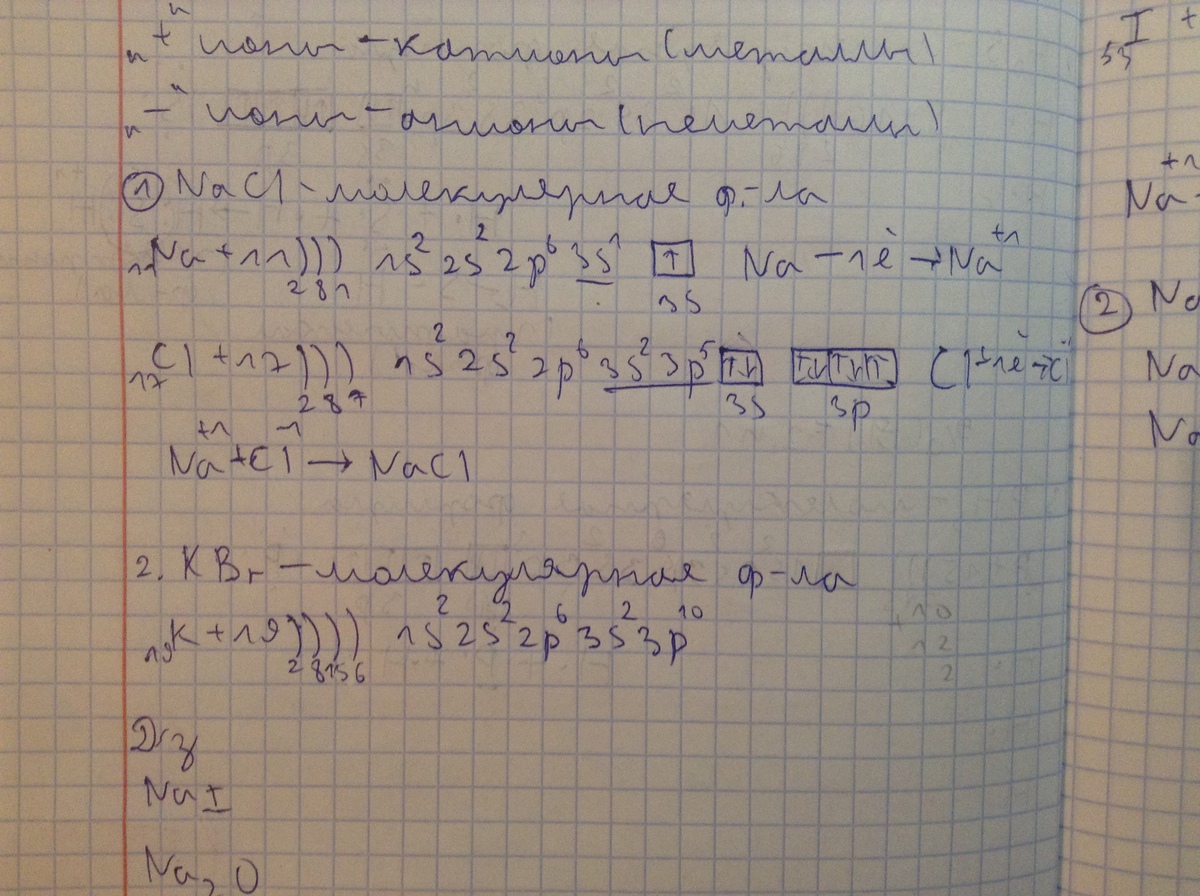 "+" ионы - катионы (металлы)
"-" ионы - анионы (неметаллы)
① NaCl - молекулярная ф-ла
₁₁Na +11))) 1s² 2s² 2p⁶ 3s¹ ↑ Na - 1ē → Na⁺¹
2 8 1 3s
₁₇Cl +17))) 1s² 2s² 2p⁶ 3s² 3p⁵ ↑↓ ↑↓ ↑↓ ↑ Cl + 1ē → Cl
2 8 7 3s 3p
Na⁺¹ + Cl⁻¹ → NaCl
2. KBr - молекулярная ф-ла
₁₉K +19)))) 1s² 2s² 2p⁶ 3s² 3p¹⁰
2 8 15 6
D/з
NaI
Na₂O
₅₃I +
Na
② Na
Na
Na